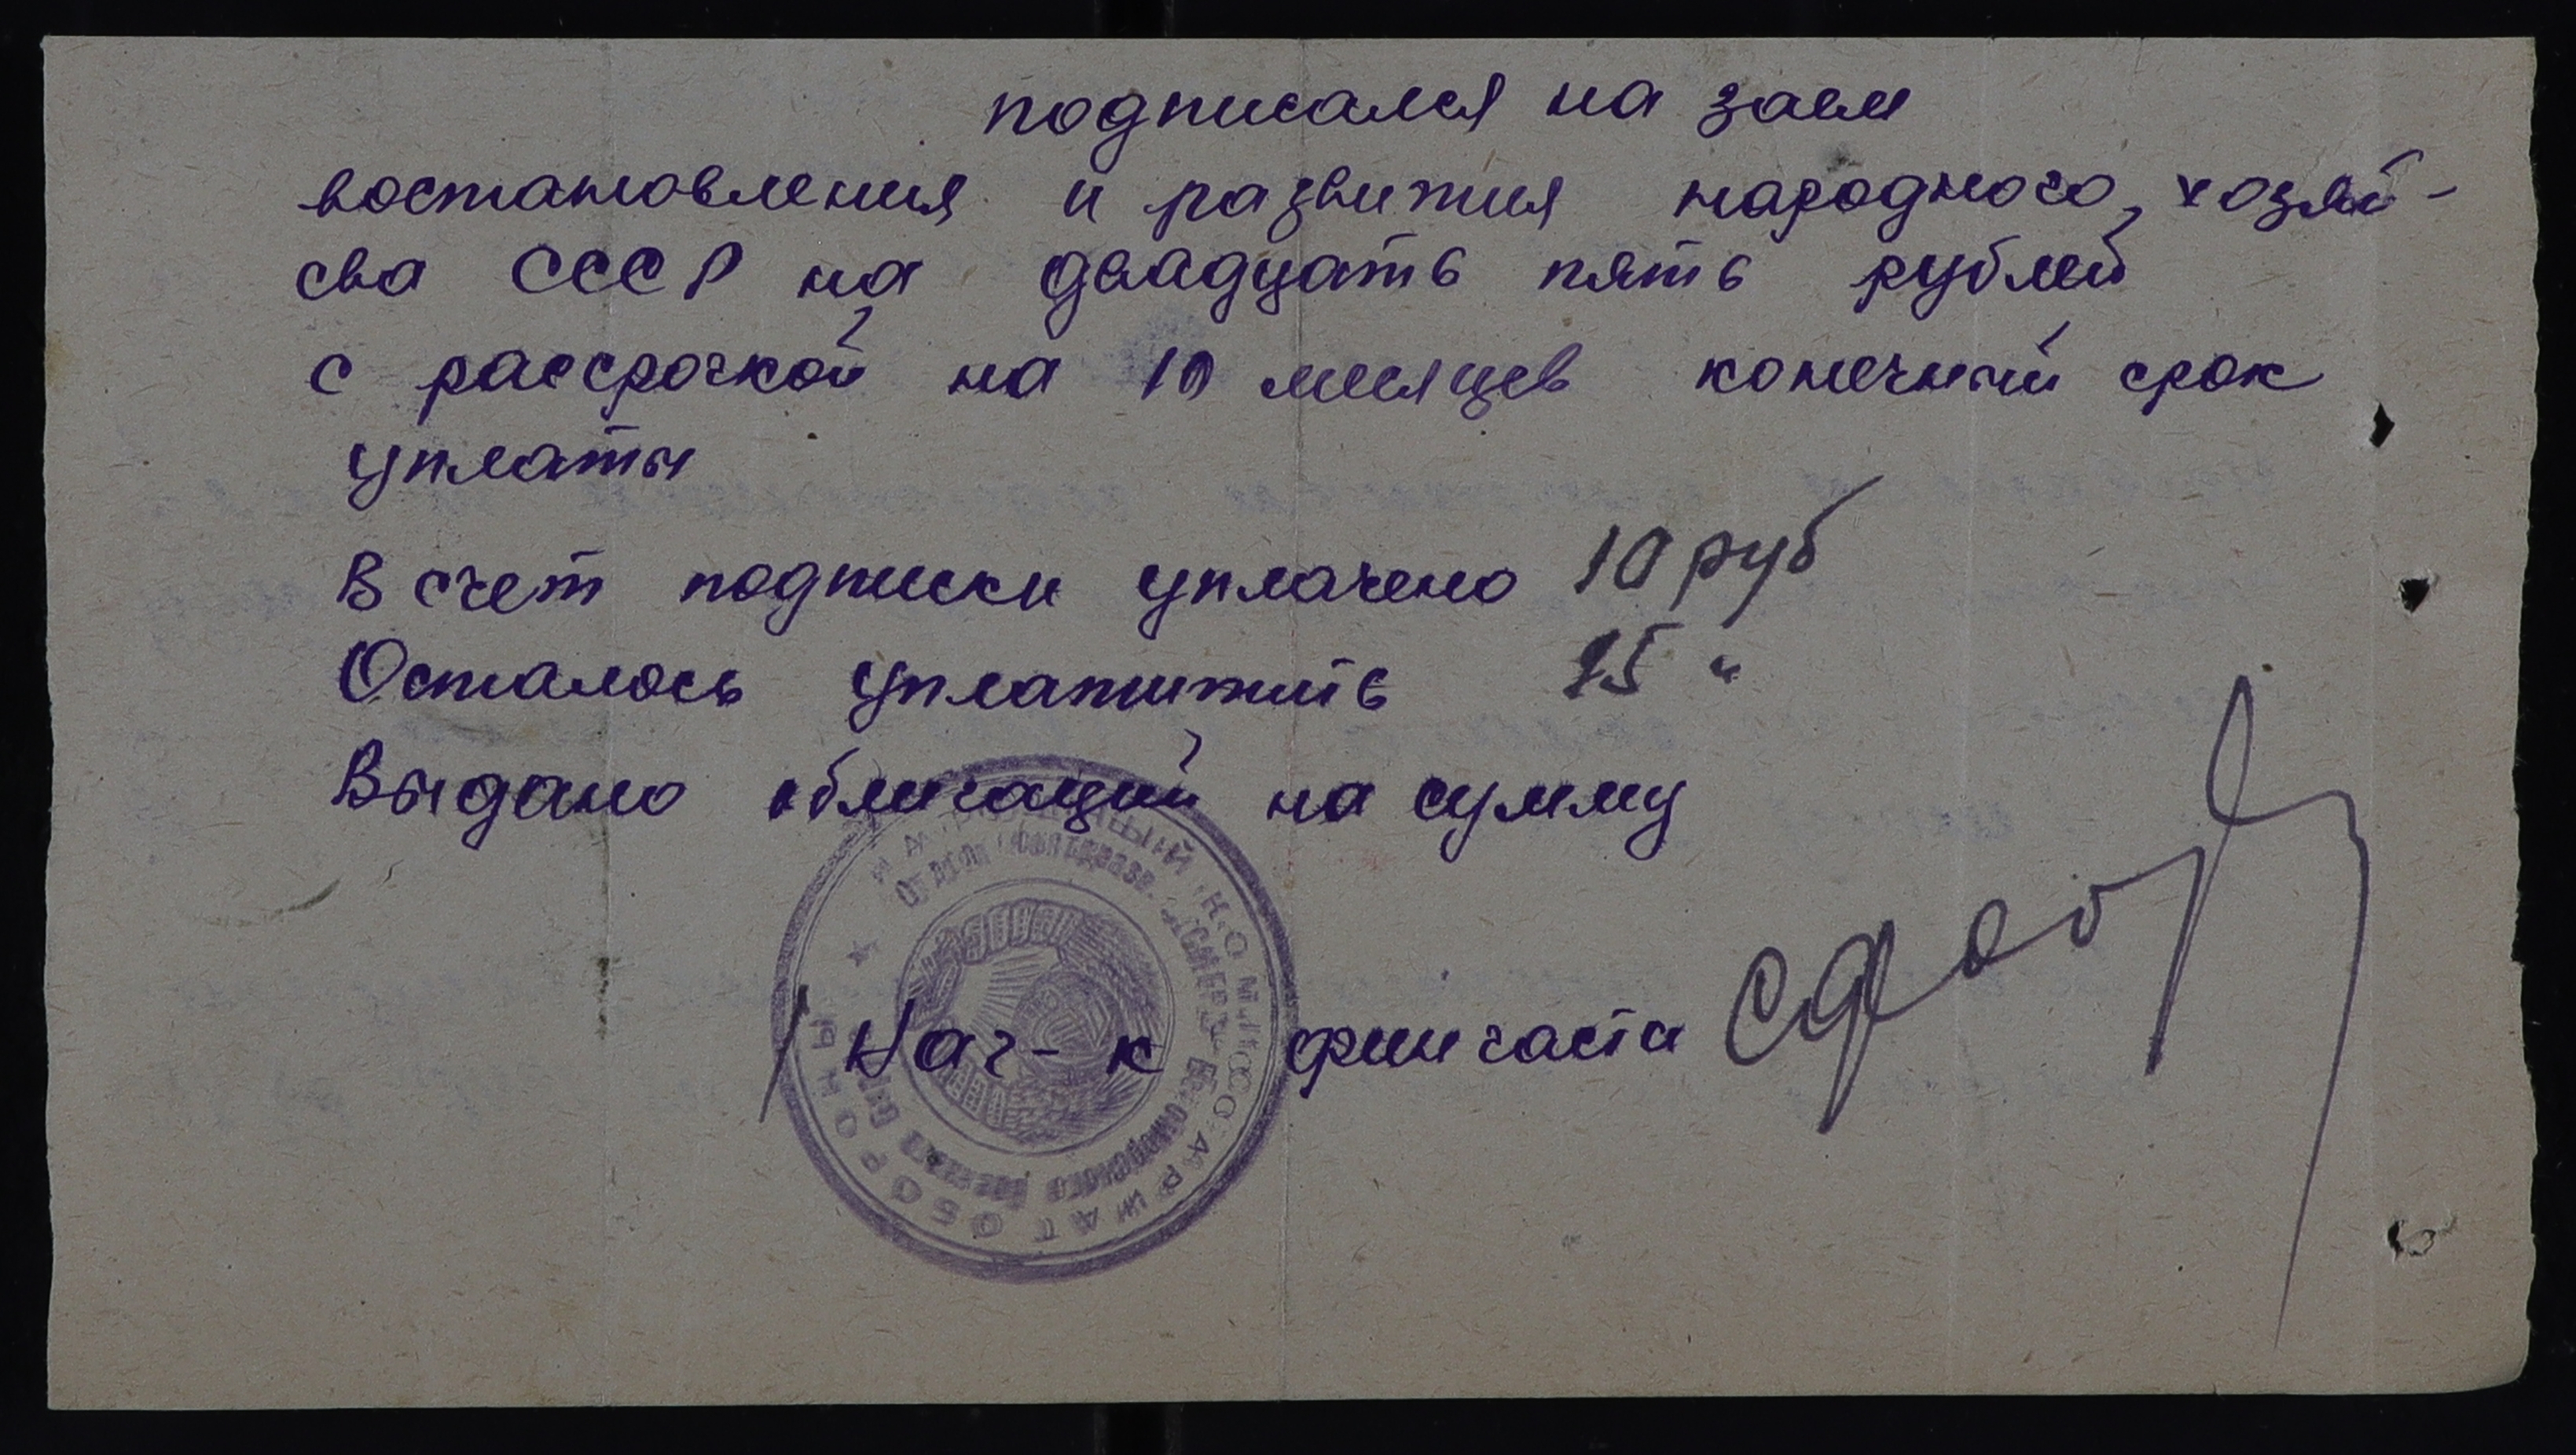 подписался на заем
востановления и развития народного хозяй-
сва СССР на двадцать пять рублей
с рассрочкой на 10 месяцев конечный срок
уплаты
В счет подписки уплачено 10 руб
Осталось уплатить 15 "
Выдано облигаций на сумму
НАРОДНЫЙ КОМИССАРИАТ ОБОРОНЫ
Нач-к финчасти